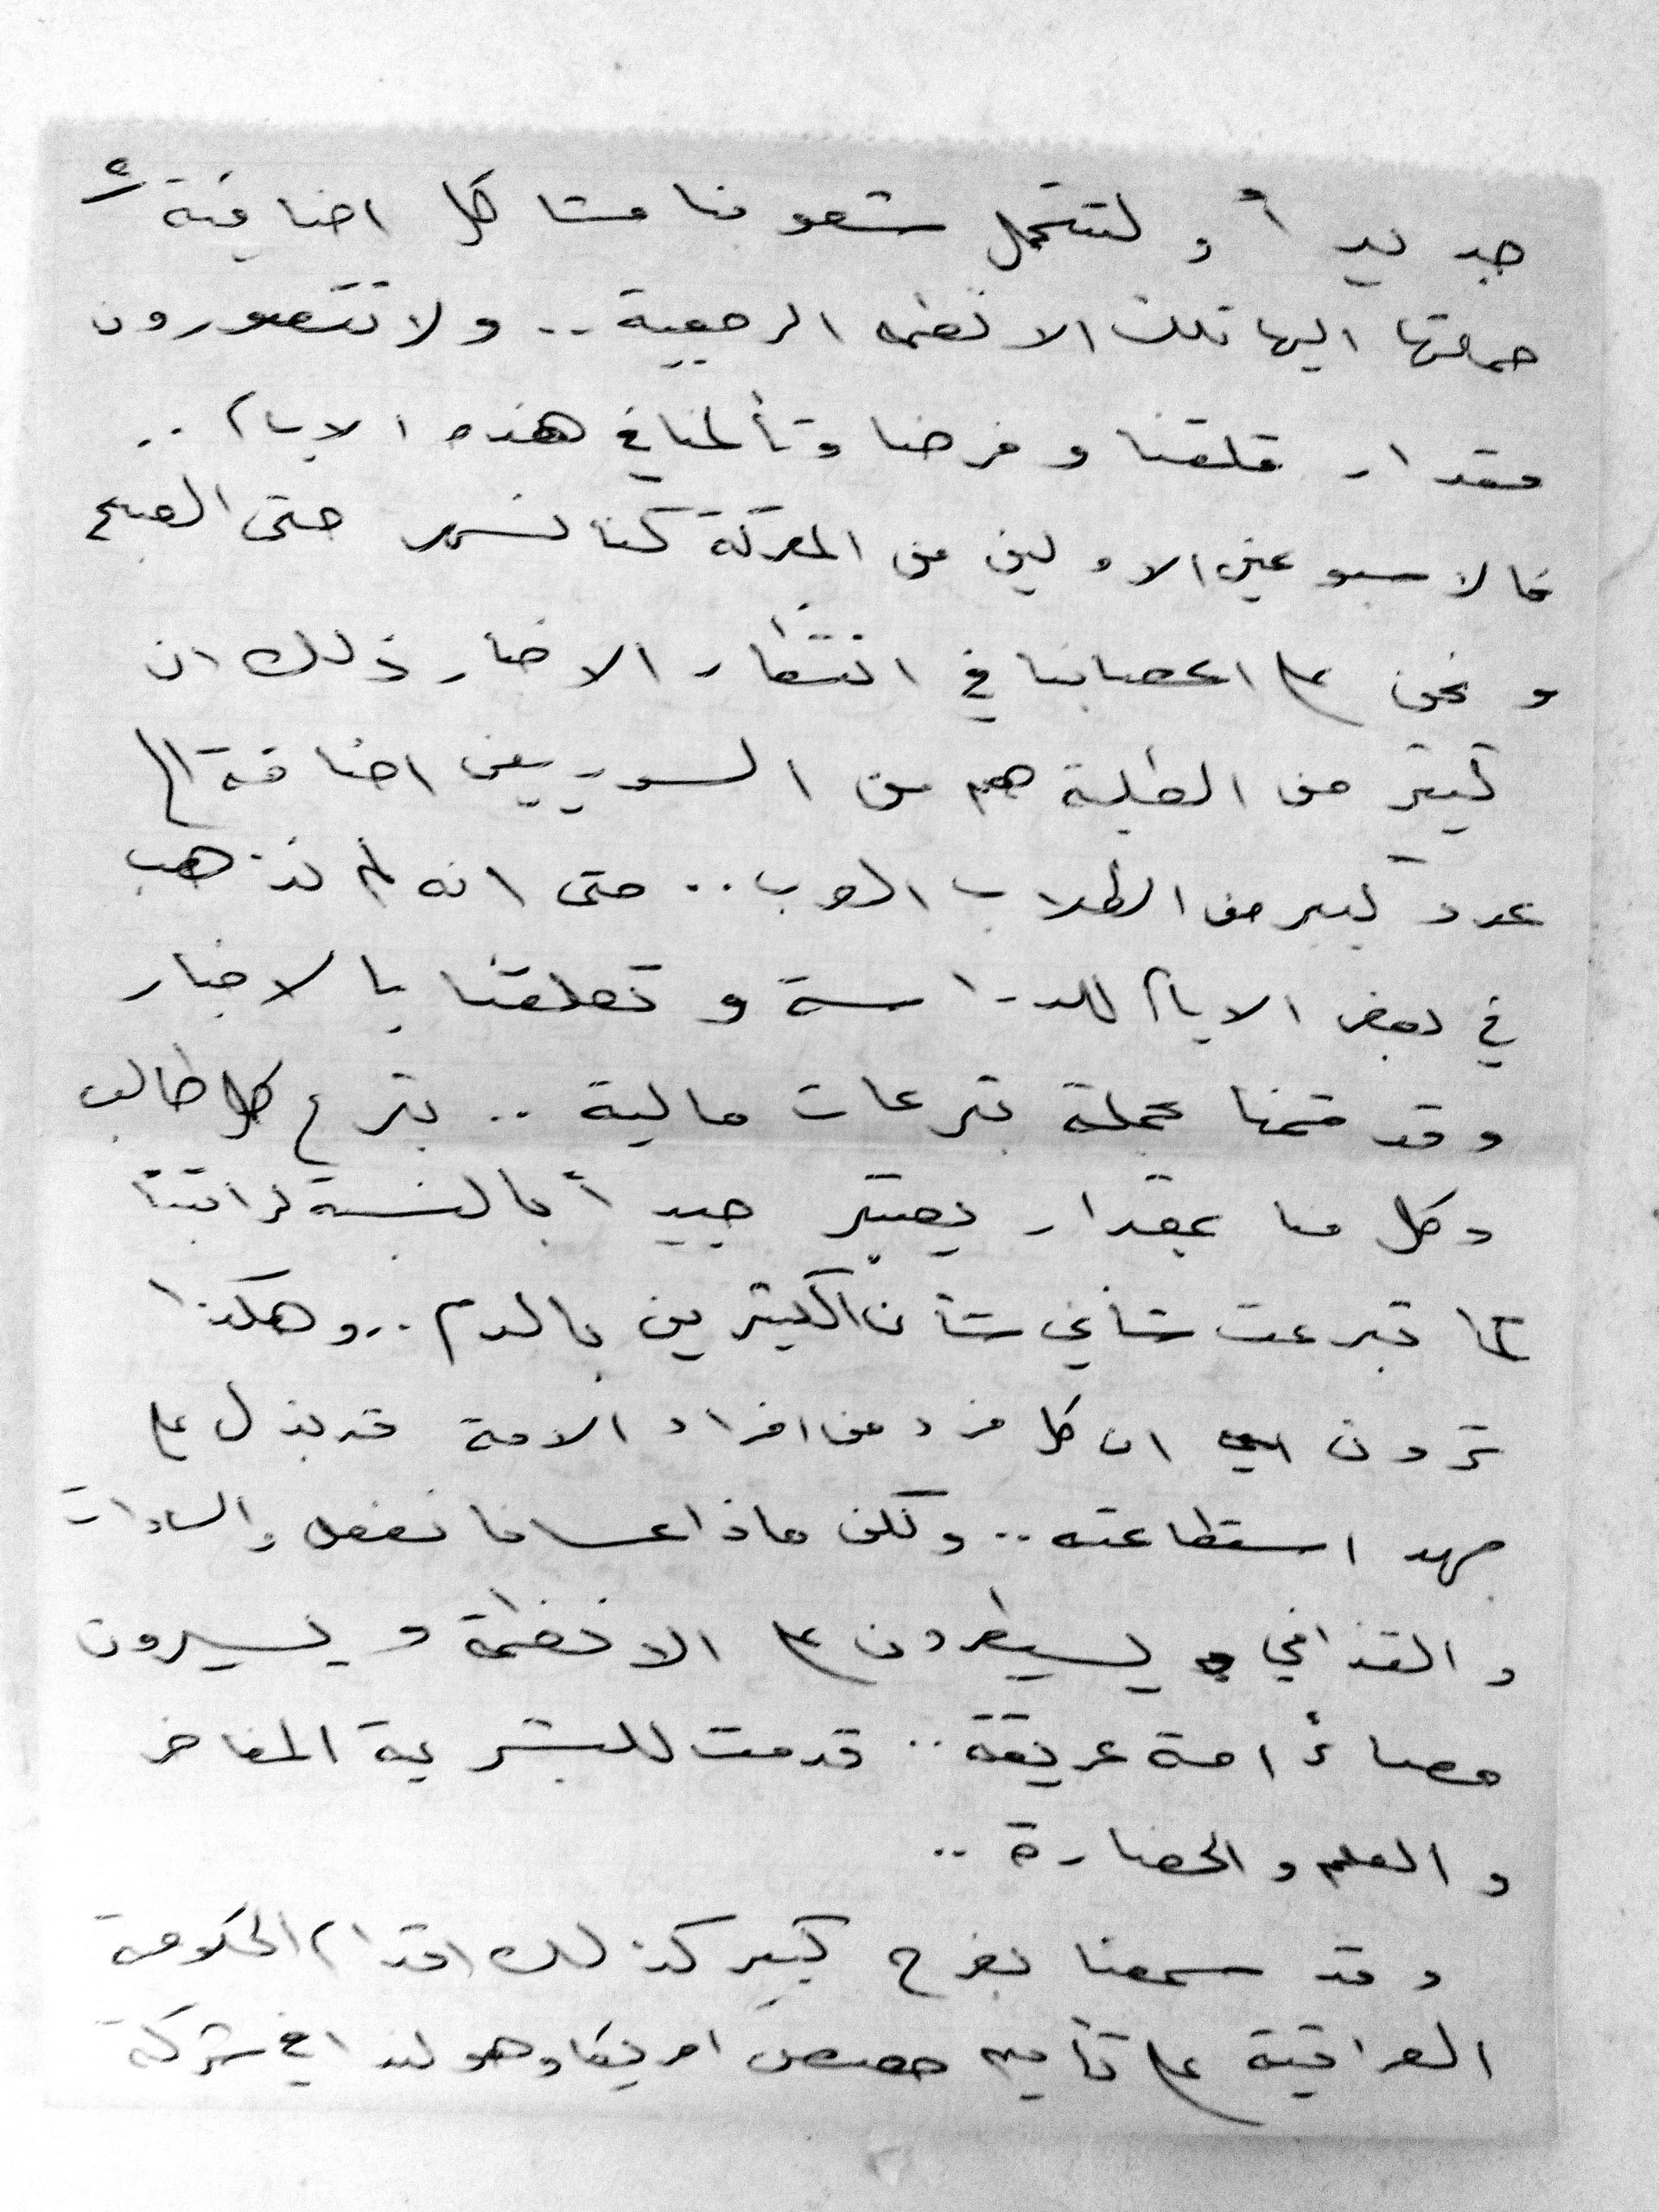 جديداً ولتتحمل شعوبنا مشاكل اضافية
حملتها اليها تلك الانظمه الرجعية .. ولا تتصورون
مقدار قلقنا وفرحنا وتألمنا في هذه الايام ..
فالاسبوعين الاولين من المعركة كنا نسهر حتى الصبح
ونحن على اعصابنا في انتظار الاخبار ذلك ان
كثير من الطلبة هم من السوريين اضافة الى
عدد كبير من الطلاب العرب .. حتى انه لم نذهب
في بعض الايام للدراسة وتعلقنا بالاخبار
وقد قمنا بحملة تبرعات مالية .. تبرع كل طالب
وكل منا بمقدار يعتبر جيداً بالنسبة لراتبنا
كما تبرعت شأني شأن الكثيرين بالدم .. وهكذا
ترون ان كل فرد من افراد الامة قد بذل على
جهد استطاعته .. ولكن ماذا عسانا نفعل والسادات
والقذافي يسيطرون على الانظمة ويسيرون
مصائر امة عريقة .. قدمت للبشرية المفاخر
والعلم والحضارة ..
وقد سمعنا بفرح كبير كذلك اقدام الحكومة
العراقية على تأميم حصص امريكا وهولندا في شركة